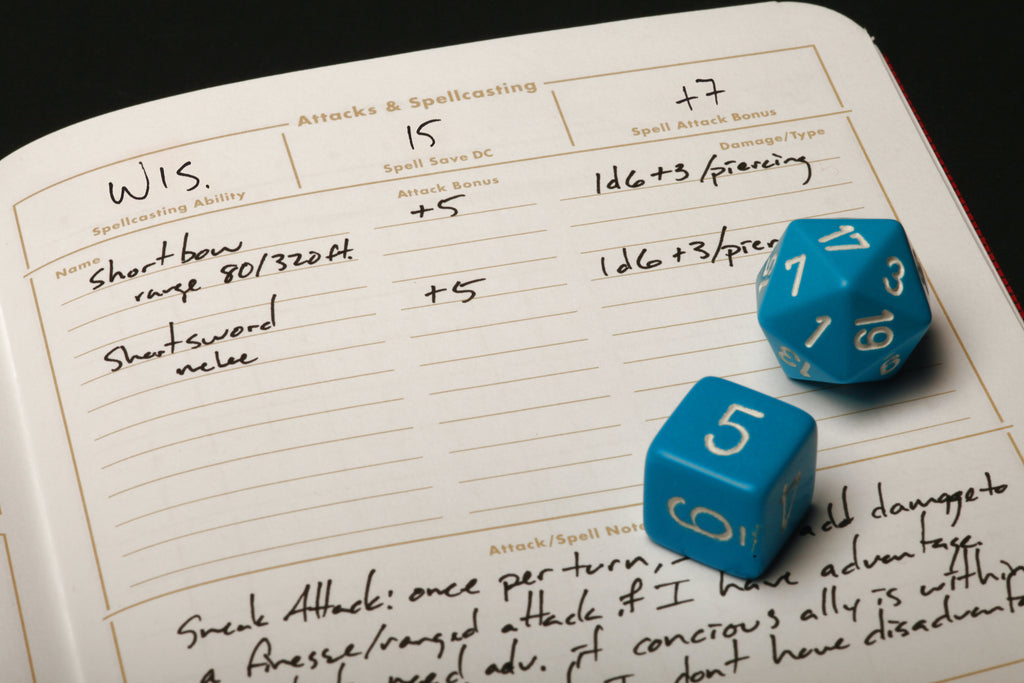 Attacks & Spellcasting
WIS.
Spellcasting Ability
15
Spell Save DC
+7
Spell Attack Bonus
Name
Attack Bonus
Damage/Type
shortbow
+5
1d6+3/piercing
range 80/320ft.
shortsword
+5
1d6+3/pier
melee
17
7
3
1
19
13
9
5
6
Attack/Spell Note
Sneak Attack: once per turn, add damage to
a finesse/ranged attack if I have advantage.
need adv. if concious ally is within
I don't have disadvanta